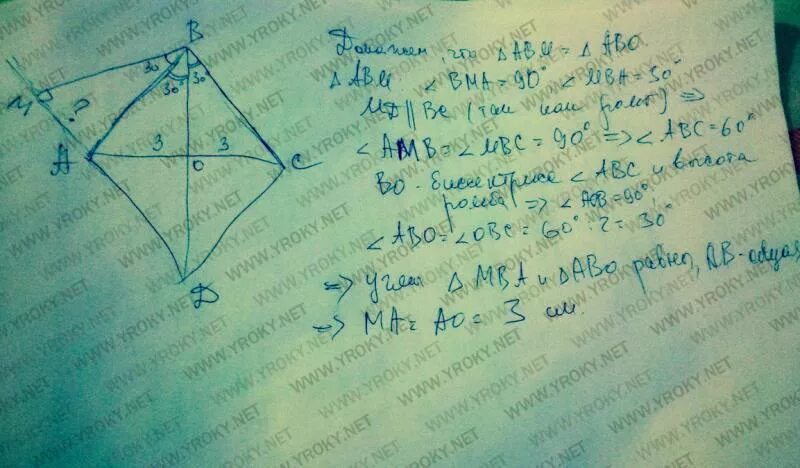 B
30
30
30
М
?
A
3
3
O
C
D
Докажем, что △ABM = △ABO
△ABM ∠BMA = 90° ∠MBA = 30°
MD || BC (так как ромб) ⇒
∠AMB = ∠MBC = 90° ⇒ ∠ABC = 60°
BO - биссектриса ∠ABC и высота
ромба ⇒ ∠AOB = 90°
∠ABO = ∠OBC = 60° : 2 = 30°
⇒ углы △MBA и △ABO равны, AB - общая
⇒ MA = AO = 3 см
WWW.YROKY.NET